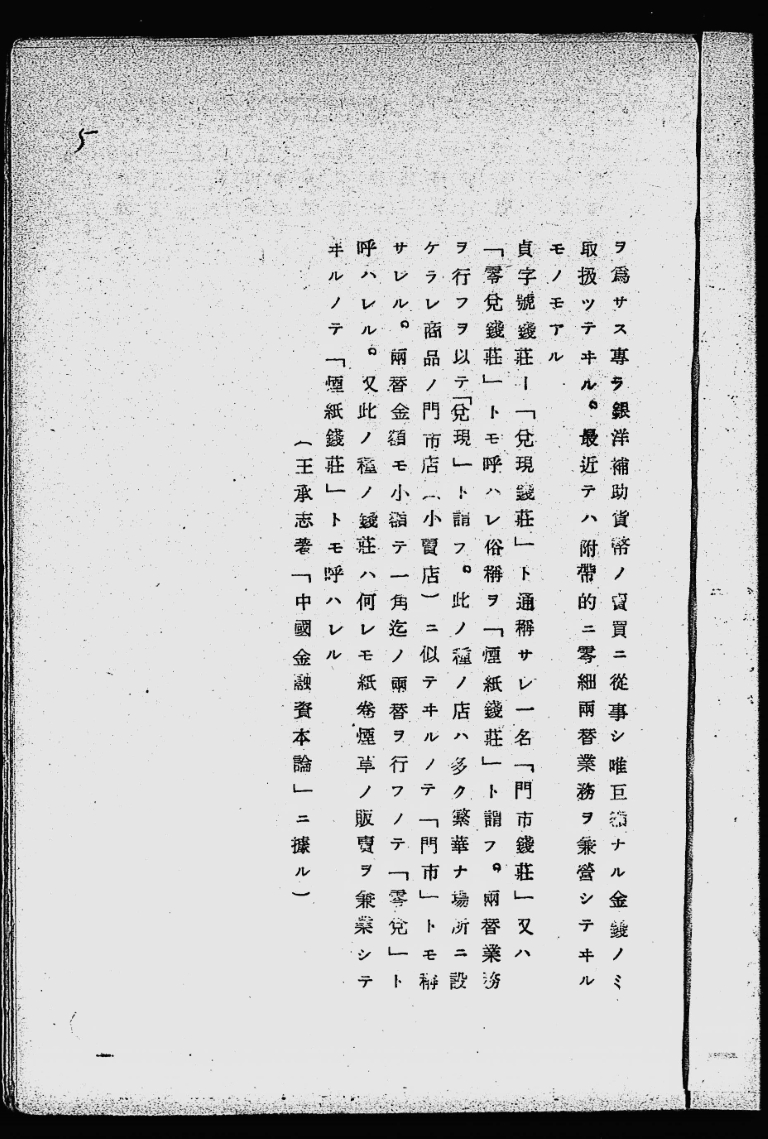 5
ヲ爲サス專ラ銀洋補助貨幣ノ賣買ニ從事シ唯巨額ナル金錢ノミ
取扱ツテヰル。最近テハ附帶的ニ零細兩替業務ヲ兼營シテヰル
モノモアル
貞字號錢莊ー「兌現錢莊」ト通稱サレ一名「門市錢莊」又ハ
「零兌錢莊」トモ呼ハレ俗稱ヲ「煙紙錢莊」ト謂フ。兩替業務
ヲ行フヲ以テ「兌現」ト謂フ。此ノ種ノ店ハ多ク繁華ナ場所ニ設
ケラレ商品ノ門市店（小賣店）ニ似テヰルノテ「門市」トモ稱
サレル。兩替金額モ小額テ一角迄ノ兩替ヲ行フノテ「零兌」ト
呼ハレル。又此ノ種ノ錢莊ハ何レモ紙卷煙草ノ販賣ヲ兼業シテ
ヰルノテ「煙紙錢莊」トモ呼ハレル
（王承志著「中國金融資本論」ニ據ル）